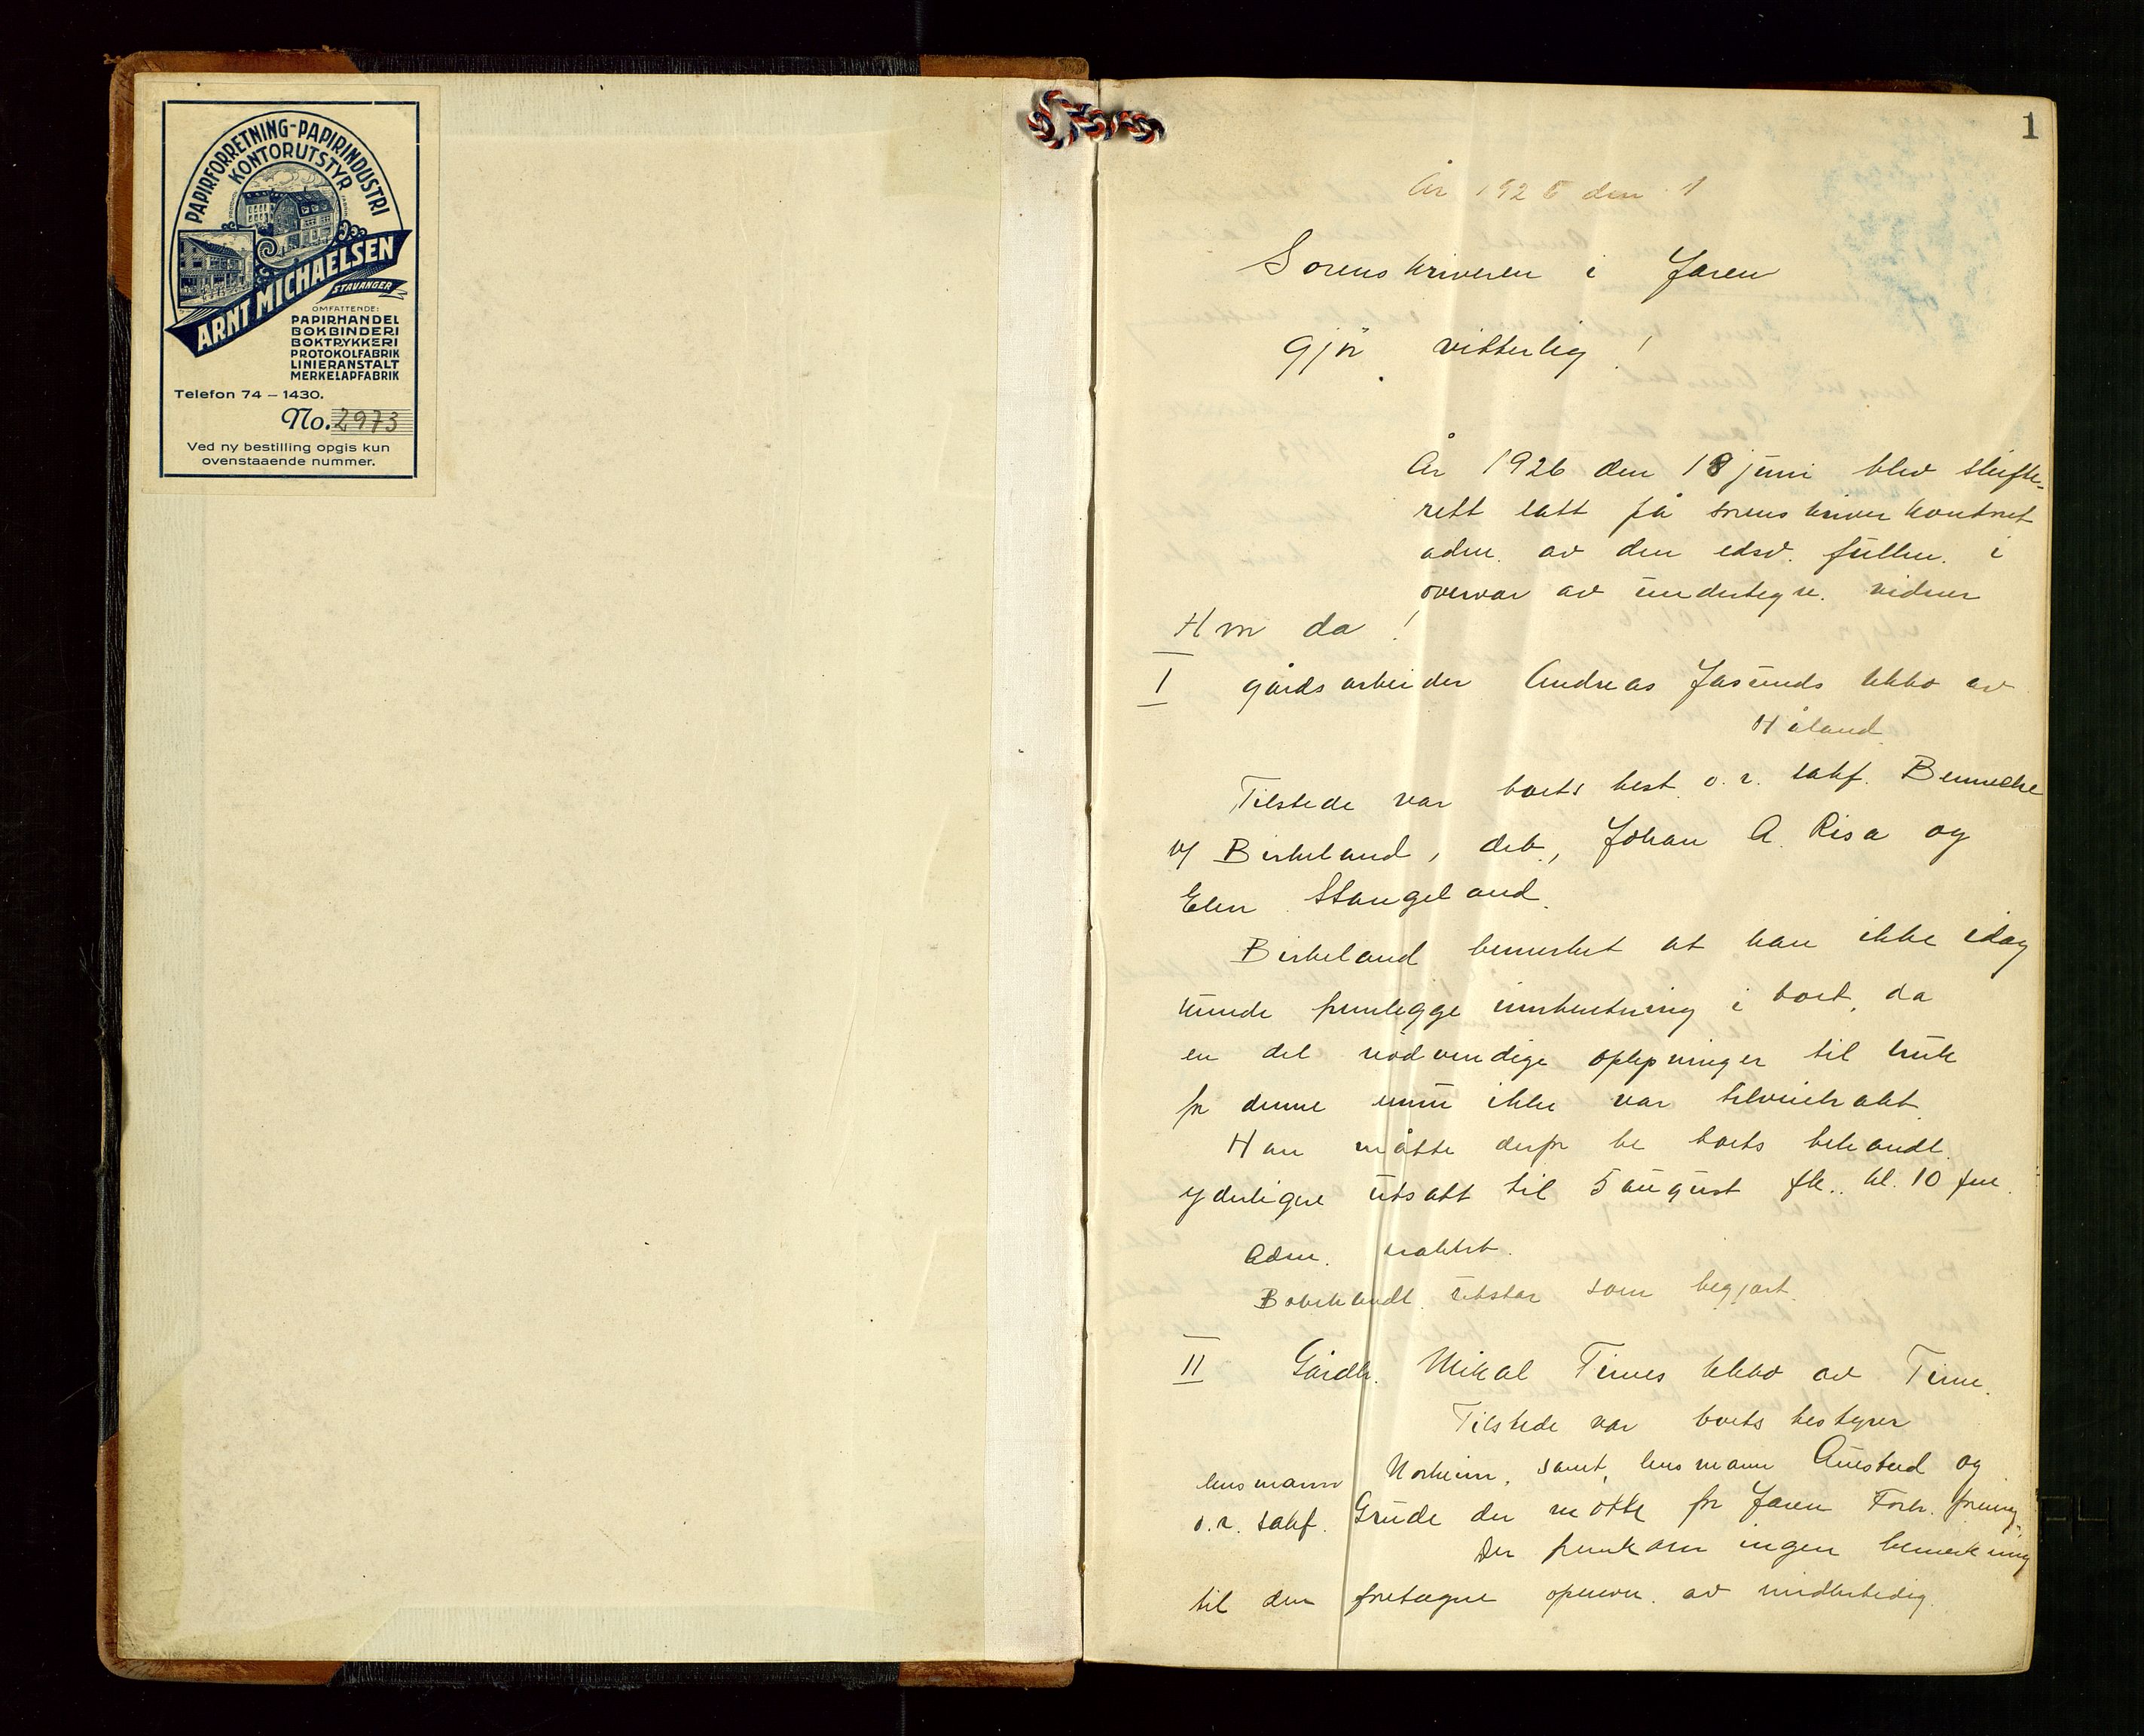 PAPIRFORRETNING-PAPIRINDUSTRI
KONTORUTSTYR
ARNT MICHAELSEN
STAVANGER
OMFATTENDE:
PAPIRHANDEL
BOKBINDERI
BOKTRYKKERI
PROTOKOLFABRIK
LINIERANSTALT
MERKELAPFABRIK
Telefon 74 – 1430.
No. 2973
Ved ny bestilling opgis kun
ovenstaaende nummer.
1
År 1926 den 1
Sorenskriveren i Jæren
gjør vitterlig!
År 1926 den 18 juni blev skifte-
rett satt på sorenskriverkontoret
adm. av den edsv. fullm. i
overvær av undertegn. vidner
Hvor da!
I gårdsarbeider Andreas Jåsunds kkbo av
Håland.
Tilstede var boets best. o.r. sakf. Bennecke
v/ Birkeland, deb., Johan A. Risa og
Elen Stangeland.
Birkeland bemerket at han ikke idag
kunde fremlegge innberetning i boet, da
en del nødvendige oplysninger til bruk
for denne ennu ikke var tilveiebrakt.
Han måtte derfor be boets behandl.
yderligere utsatt til 5 august fk. kl. 10 fm.
Adm. vedtok.
Bobehandl. utstår som begjært.
II Gårdbr. Mikal Times kkbo av Time.
Tilstede var boets bestyrer
lensmann Norheim, samt lensmann Austad og
o.r. sakf. Grude der møtte for Jæren Forbr.forening.
Der fremkom ingen bemerkning
til den foretagne opnevn. av midlertidig